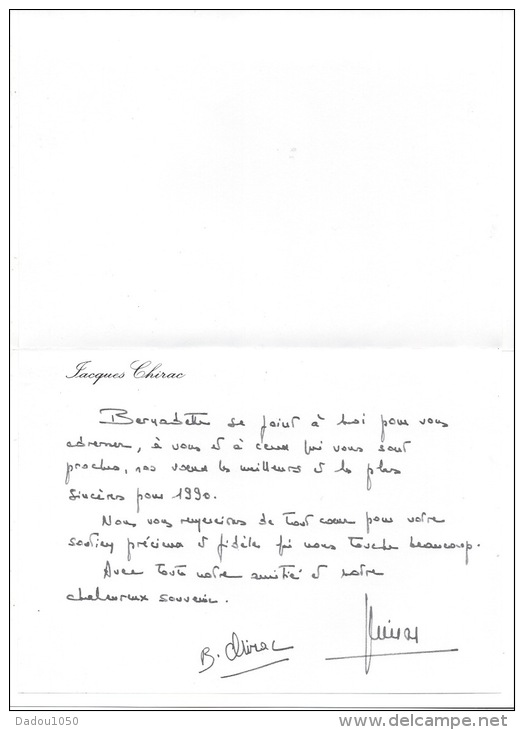 Jacques Chirac
Bernadette se joint à moi pour vous
adresser, à vous et à ceux qui vous sont
proches, nos vœux les meilleurs et les plus
sincères pour 1990.
Nous vous remercions de tout cœur pour votre
soutien précieux et fidèle qui nous touche beaucoup.
Avec toute notre amitié et notre
chaleureux souvenir.
B. Chirac
Chirac
Dadou1050
delcampe.net